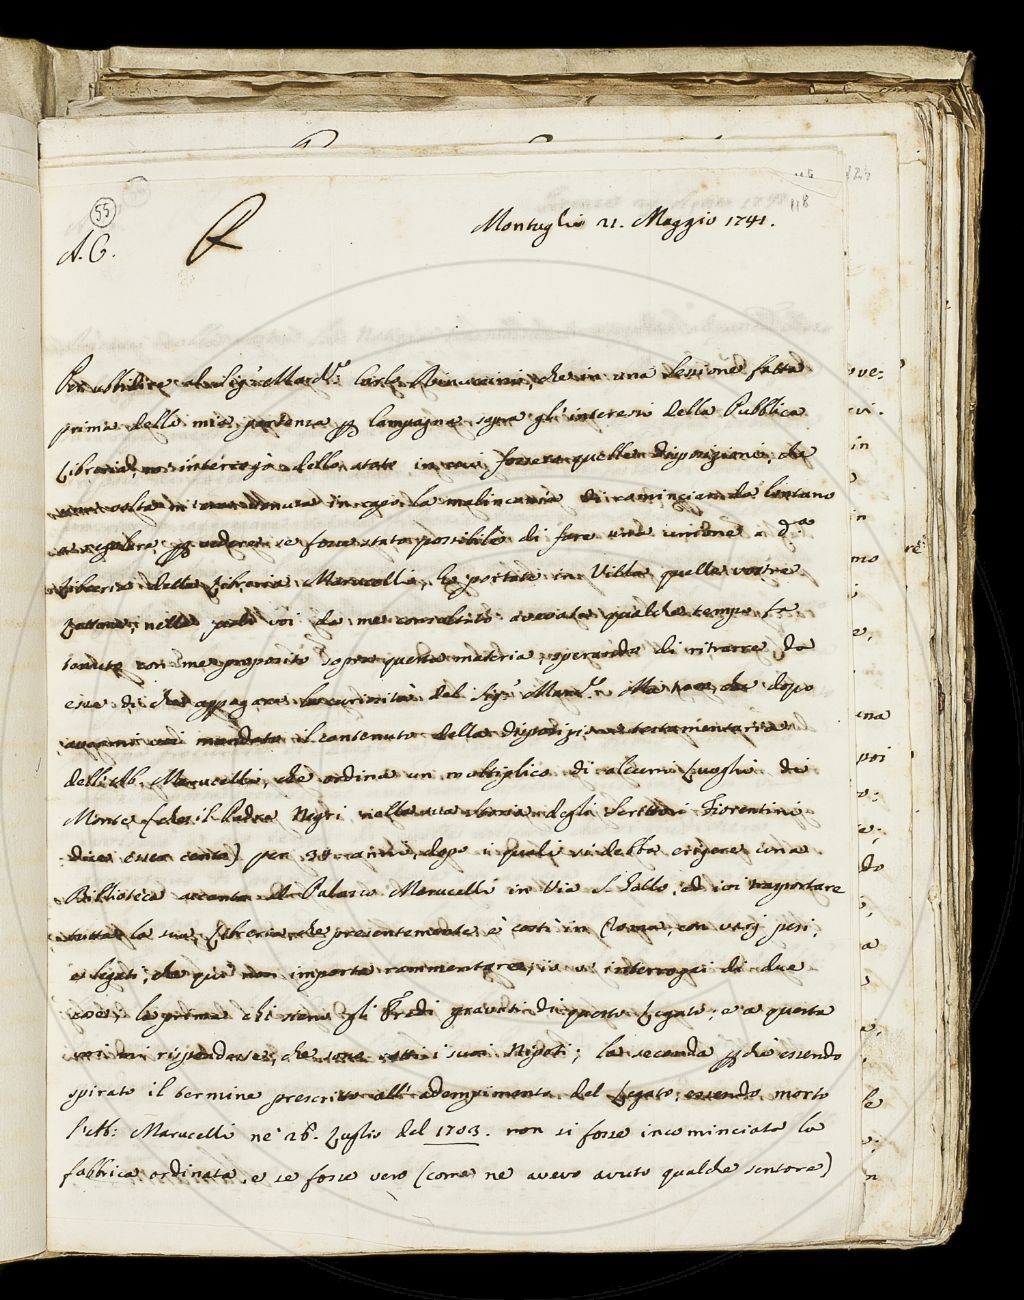 55
118
A. C.
R
Montughi 21. Maggio 1741.
Per ubbidire al Sig.r March.e Carlo Rinuccini, che in una sessione fatta
prima della mia partenza p campagna sopra gl'interessi della Pubblica
Libreria, m'interrogò dello stato in cui fossero quelle disposizioni, che
volta in capo la malinconia di cominciare da lontano
a regolare p vedere se fosse stato possibile di fare una unione a d.a
Libreria della Libreria Marucelli, ho portato in Villa quelle vostre
Lettere, nelle quali voi da me consultato avevate qualche tempo fa
tenuto con me proposito sopra questa materia, sperando di ritrarre da
esse di che appagare la curiosità del Sig.r March.e Ma dopo
avermi voi mandato il contenuto della disposizione testamentaria
dell'Ab. Marucelli, che ordina un moltiplico di alcuni Luoghi di
Monte (che il Padre Negri nella sua Storia degli Scrittori Fiorentini
dice esser cento) per 30 anni, dopo i quali si debba erigere una
Biblioteca accanto al Palazzo Marucelli in Via S. Gallo, ed ivi trasportare
tutta la sua Libreria, che presentemente è costì in Roma, con varj pesi,
e legati, che qui non importa rammentare, io vi interrogai di due
cose; la prima chi sieno gli Eredi gravati di questo Legato; e a questa
voi mi rispondeste, che sono i suoi Nipoti; la seconda p chè essendo
spirato il termine prescritto all'adempimento del Legato, essendo morto
l'Ab: Marucelli ne' 26. Luglio del 1703. non si fosse incominciata la
fabbrica ordinata, e se fosse vero (come ne avevo avuto qualche sentore)